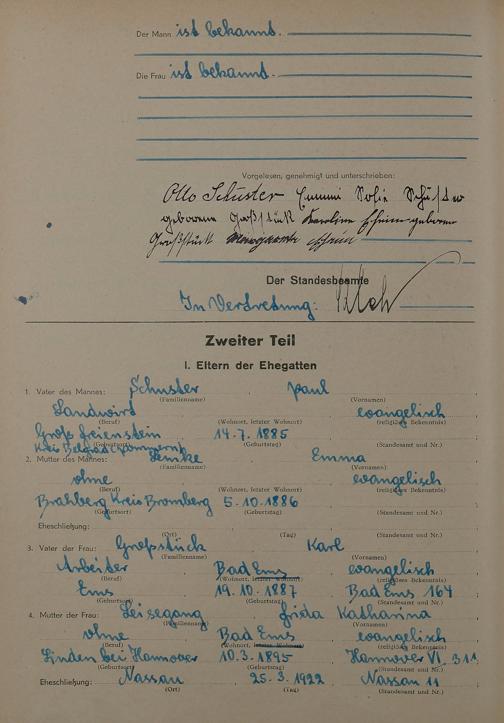 Der Mann ist bekannt.
Die Frau ist bekannt.
Vorgelesen, genehmigt und unterschrieben:
Otto Schuster Emmi Sofie Schuster
geborene Großstück Karoline geborene
Großstück
Der Standesbeamte
In Vertretung:
Zweiter Teil
I. Eltern der Ehegatten
1. Vater des Mannes: Schuster, Paul
(Familienname) (Vornamen)
Landwirt, evangelisch
(Beruf) (Wohnort, letzter Wohnort) (religiöses Bekenntnis)
Groß Freienstein 14.7.1885
Kreis Belgard (Pommern)
(Geburtsort) (Geburtstag) (Standesamt und Nr.)
2. Mutter des Mannes: Emma
(Familienname) (Vornamen)
ohne evangelisch
(Beruf) (Wohnort, letzter Wohnort) (religiöses Bekenntnis)
Brahberg Kreis Bromberg 5.10.1886
(Geburtsort) (Geburtstag) (Standesamt und Nr.)
Eheschließung:
(Ort) (Tag) (Standesamt und Nr.)
3. Vater der Frau: Großstück, Karl
(Familienname) (Vornamen)
Arbeiter, Bad Ems, evangelisch
(Beruf) (Wohnort, letzter Wohnort) (religiöses Bekenntnis)
Ems 19.10.1887 Bad Ems 164
(Geburtsort) (Geburtstag) (Standesamt und Nr.)
4. Mutter der Frau: Leisegang, Frida Katharina
(Familienname) (Vornamen)
ohne Bad Ems, evangelisch
(Beruf) (Wohnort, letzter Wohnort) (religiöses Bekenntnis)
Linden bei Hannover 10.3.1895 Hannover VI 311
(Geburtsort) (Geburtstag) (Standesamt und Nr.)
Eheschließung: Nassau 25.3.1922 Nassau 11
(Ort) (Tag) (Standesamt und Nr.)